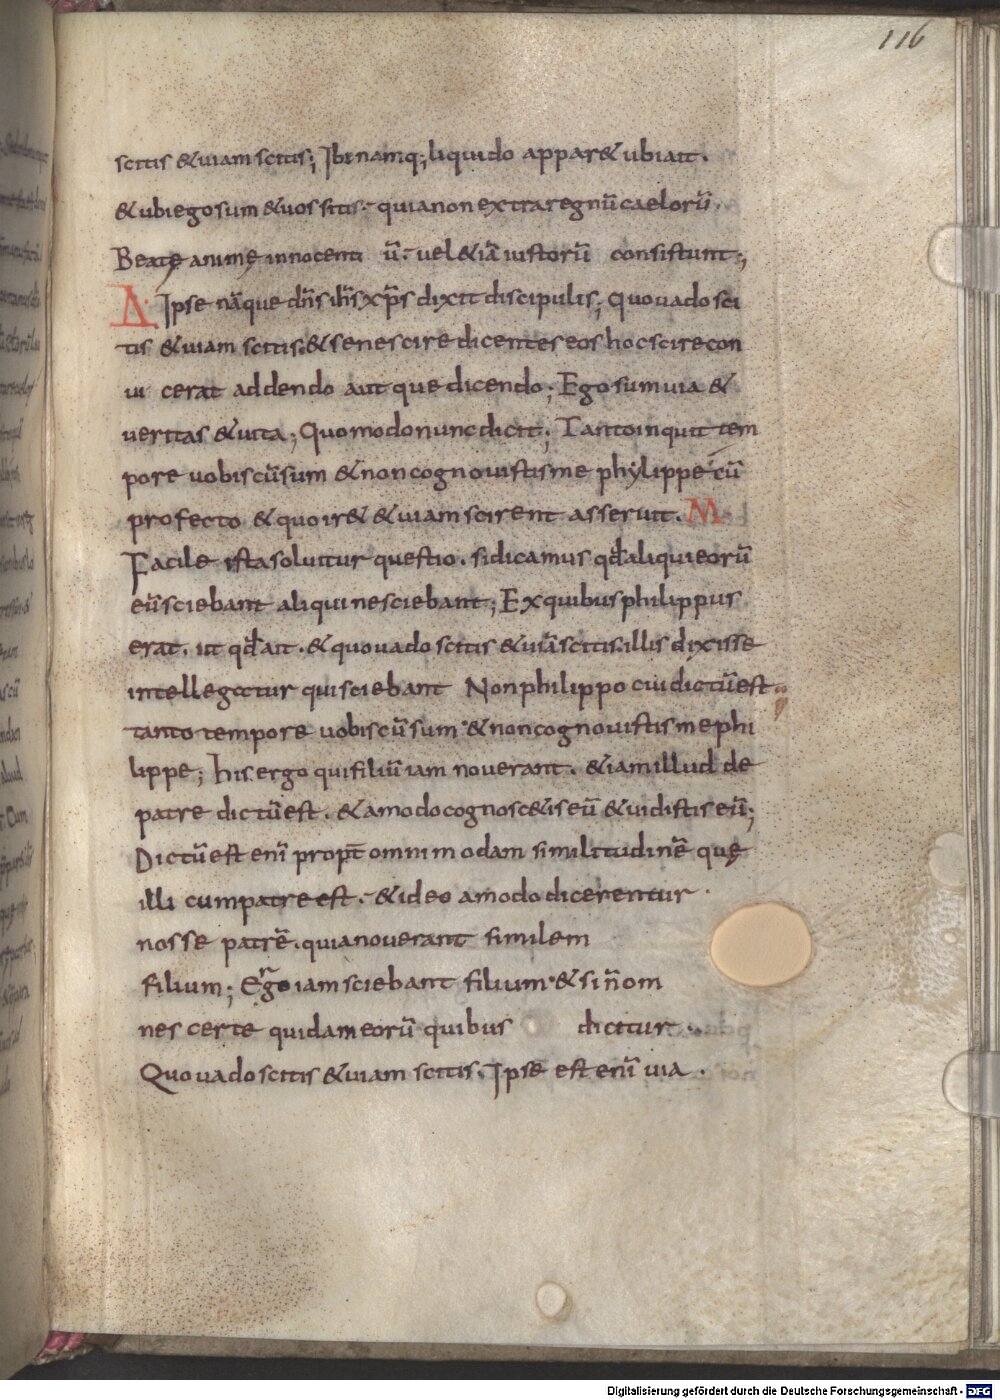 116
scitis & uiam scitis; Ibi namq; liquido appar& ubi ait.
& ubi ego sum & uos sitis. quia non extra regnū caelorū.
Beatę animę innocenti ū. uel &iā iustorū consistunt;
Δ. Ipse nāque dn̄s ih̄s xp̄s dixit discipulis; Quo uado sci
tis & uiam scitis. & se nescire dicentes eos hoc scire con
ui cerat addendo atit que dicendo; Ego sum uia &
ueritas & uita; Quomodo nunc dicit; Tanto inquit tem
pore uobiscū sum & non cognouistis me phylippe cū
profecto & quo ir& & uiam scirent asseruit. M.
Facile ista soluitur questio. si dicamus qđ aliqui eorū
eū sciebant aliqui nesciebant; Ex quibus philippus
erat. ut qđ ait. & quo uado scitis & uiā scitis. illis dixisse
intellegitur qui sciebant Non philippo cui dictū est
tanto tempore uobiscū sum & non cognouistis me phi
lippe; his ergo qui filiū iam nouerant. & iam illud de
patre dictū est. & amodo cognosc&is eū & uidistis eū;
Dictū est enī propt̄ omnimodam similitudinē quę
illi cum patre est. & ideo amodo dicerentur.
nosse patrē. quia nouerant similem
filium; Ergo iam sciebant filium & si n̄ om
nes certe quidam eorū quibus dicitur.
Quo uado scitis & uiam scitis. Ipse est enī uia.
Digitalisierung gefördert durch die Deutsche Forschungsgemeinschaft - DFG